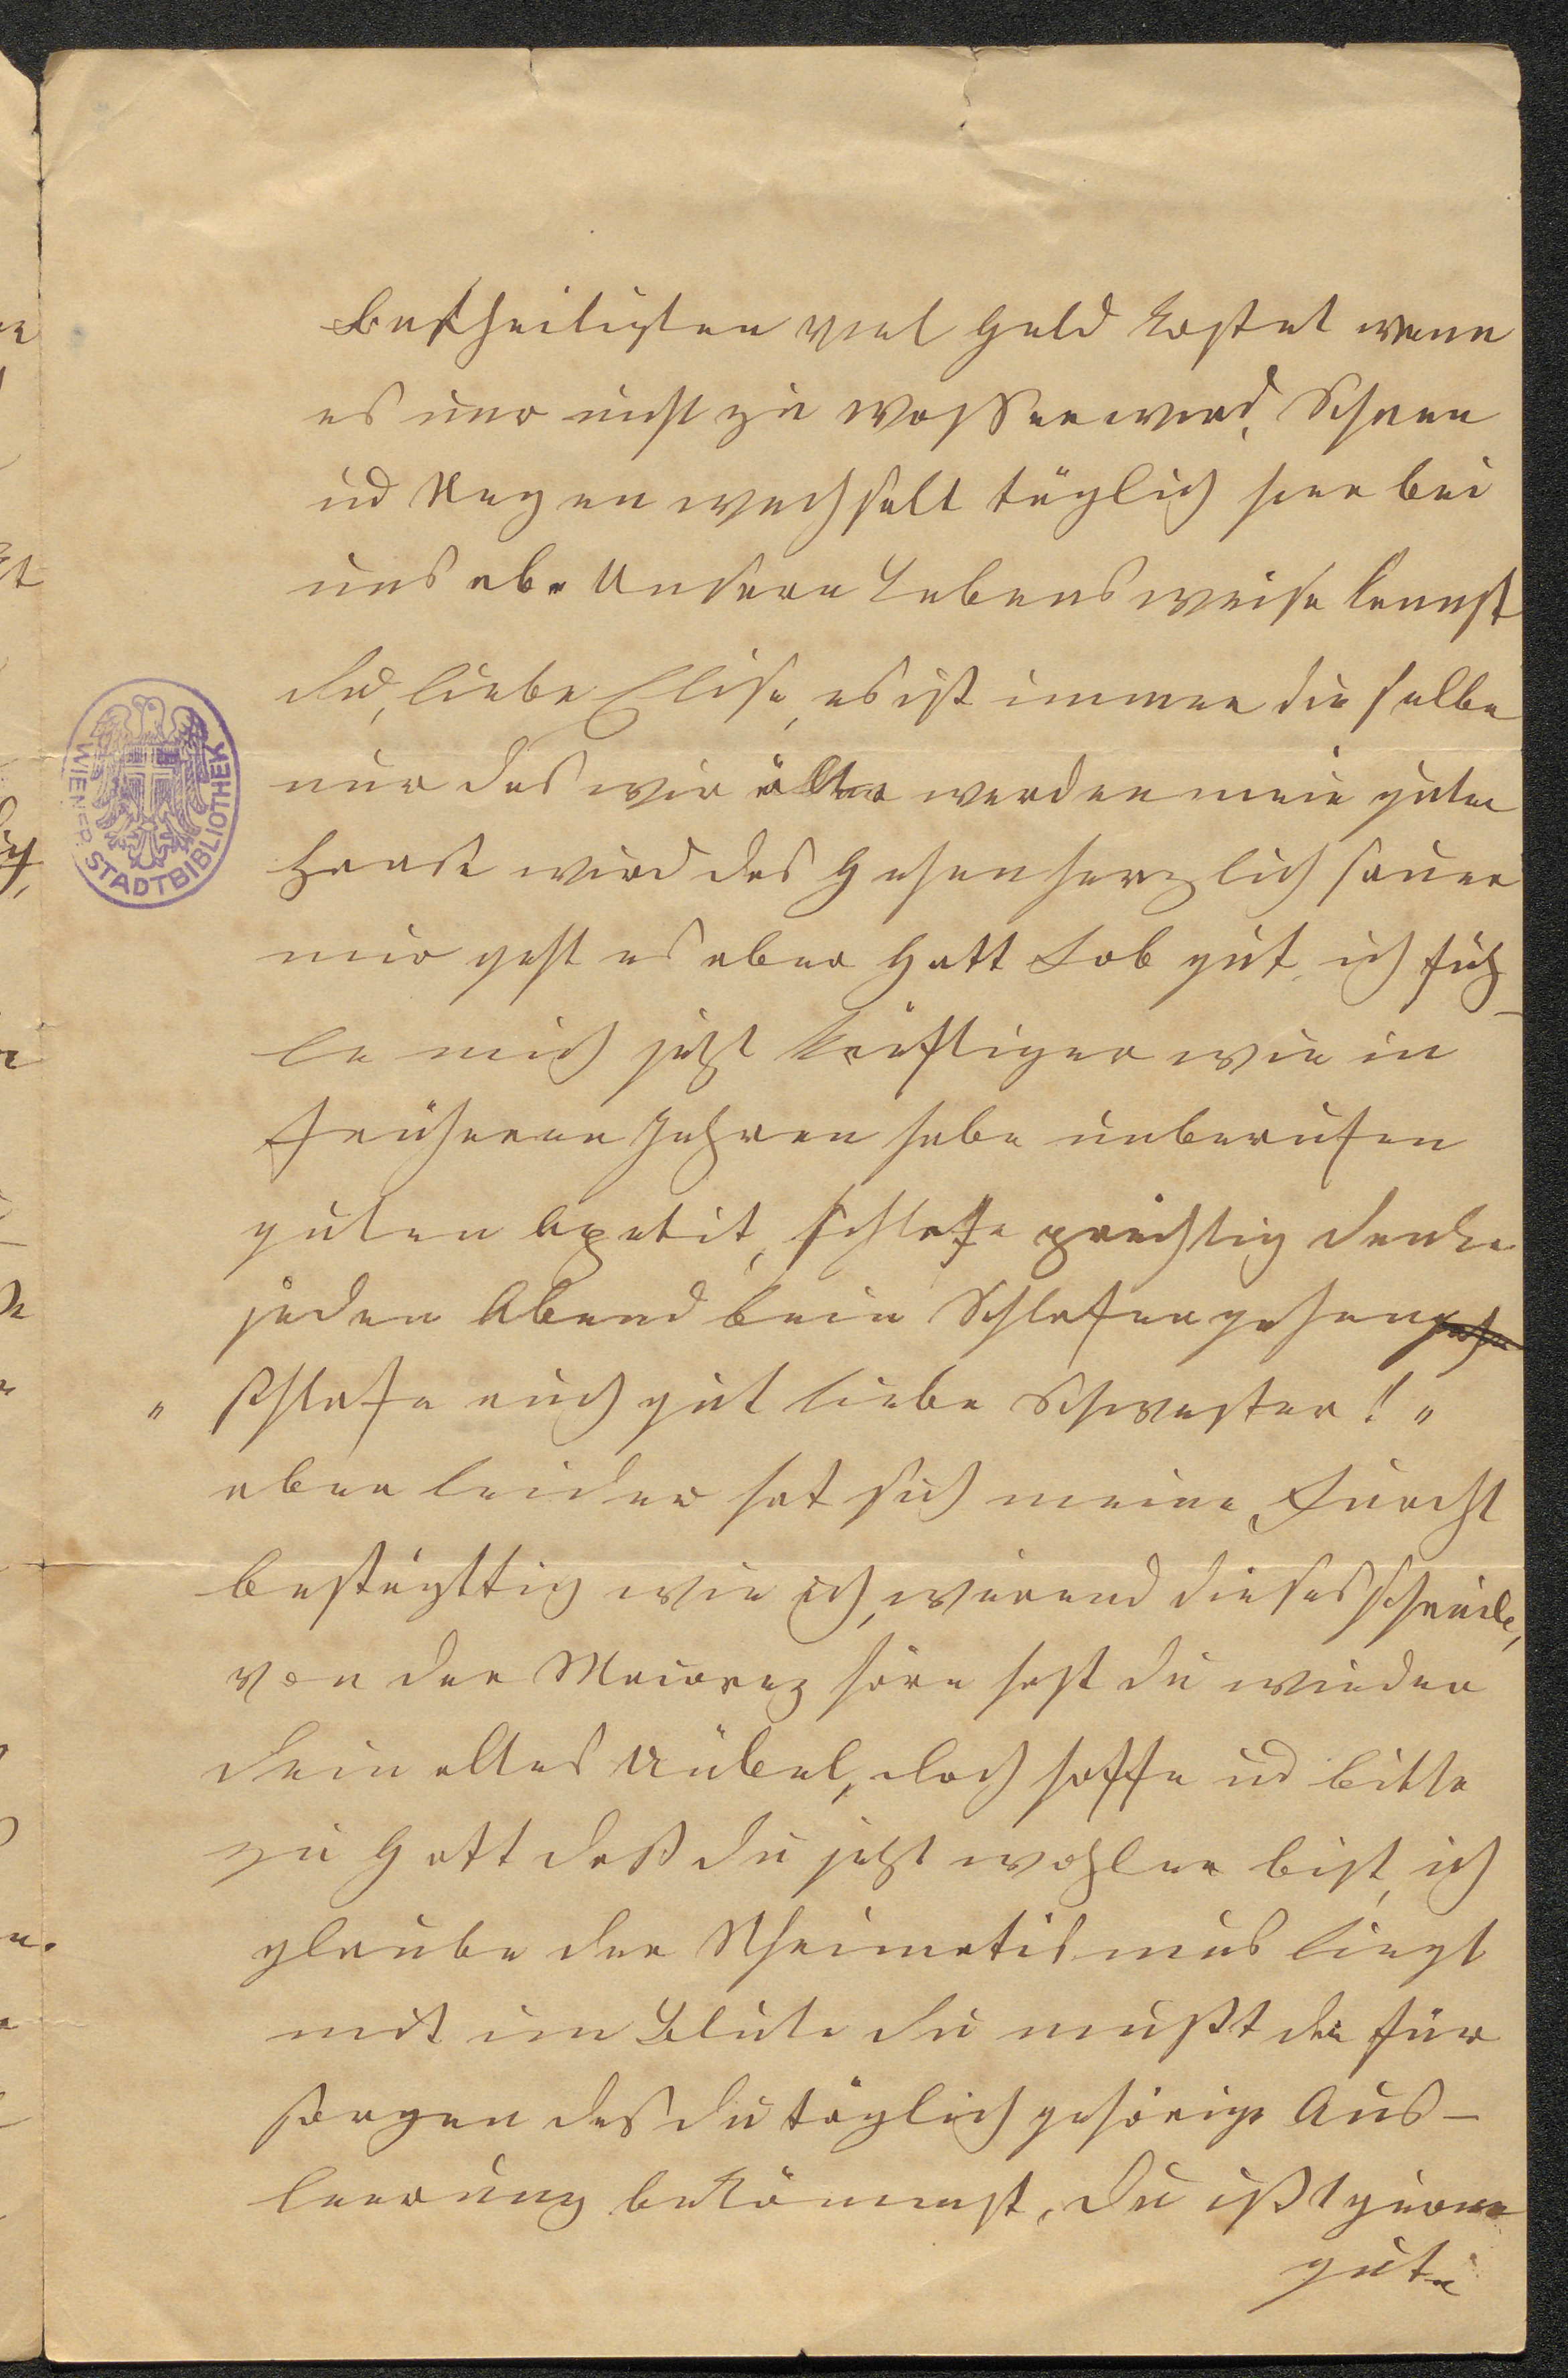 Bethheiligten viel Geld kostet wenn
es nur nicht zu Wasser wird, Schnee
ud Regen wechselt täglich hier bei
uns ab. Unsere Lebensweise kennst
du, liebe Elise, es ist immer die selbe
nur das wir älter werden mein guter
wird das Gehen herzlich sauer
mir geht es aber Gott Lob gut, ich füh-
le mich jetzt kräftiger wie in
früheren Jahren habe unberufen
guten Apetit, schlafe prächtig denke
jeden Abend beim Schlafengehen
„ Schlafe auch gut liebe Schwester! "
aber leider hat sich meine Furcht
bestäyttig wie ich, wärend dieses schreibe,
von der höre hast du wieder
dein altes Uübel, doch hoffe ud bitte
zu Gott daß du jetzt wohler bist, ich
glaube der Rheimatismus liegt
mit im Blute du mußt da für
sorgen das du täglich gehörige Aus-
leerung bekömmst, du ißt gerne
gute
WIENER STADTBIBLIOTHEK